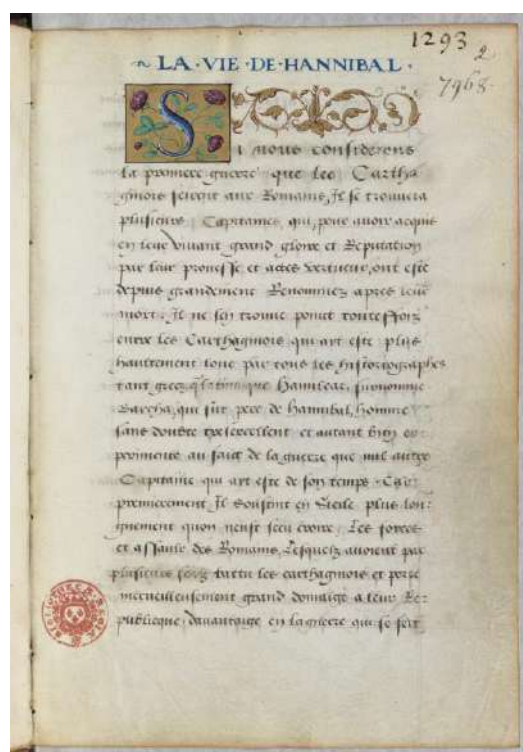 1293
2
7968
~ LA · VIE · DE · HANNIBAL ·
SI nous considerons
la premiere guerre que les Cartha
ginois feirent aux Romains, Il se trouvera
plusieurs Capitaines, qui, pour avoir acquis
en leur vivant grand gloire et Reputation
par leur prouesse et actes vertueux, ont esté
depuis grandement Renommez apres leur
mort: Il ne s'en trouve point touteffois
entre les Carthaginois qui ayt esté plus
haultement loué par tous les historiographes
tant grecz q̃ latins que Hamilcar, surnommé
Barcha, qui fut pere de Hannibal, homme
sans doubte tresexcellent et autant bien ex-
perimenté au faict de la guerre que nul autre
Capitaine qui ayt esté de son temps. Car
premierement Il soustint en Sicile plus lon-
guement qu'on n'eust sceu croire, Les forces
et assaulx des Romains, Lesquelz avoient par
plusieurs foys battu les carthaginois et porté
merveilleusement grand dommaige a leur Re-
publicque, davantaige en la guerre qui se feit
BIBLIOTHECA REGIA